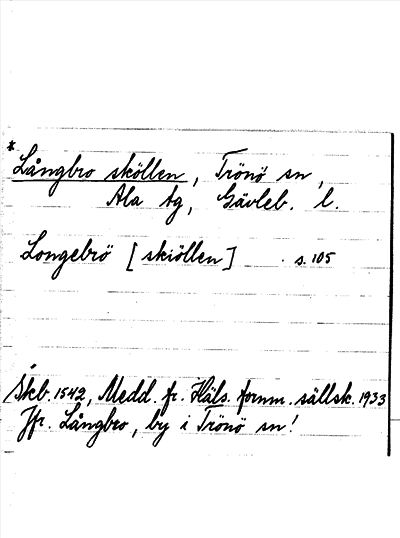 * Långbro sköllen, Trönö sn,
Ala tg, Gävleb. l.
Longebrö [skiöllen] s. 105
Skb. 1542, Medd. fr. Häls. fornm. sällsk. 1933
Jfr. Långbro, by i Trönö sn!